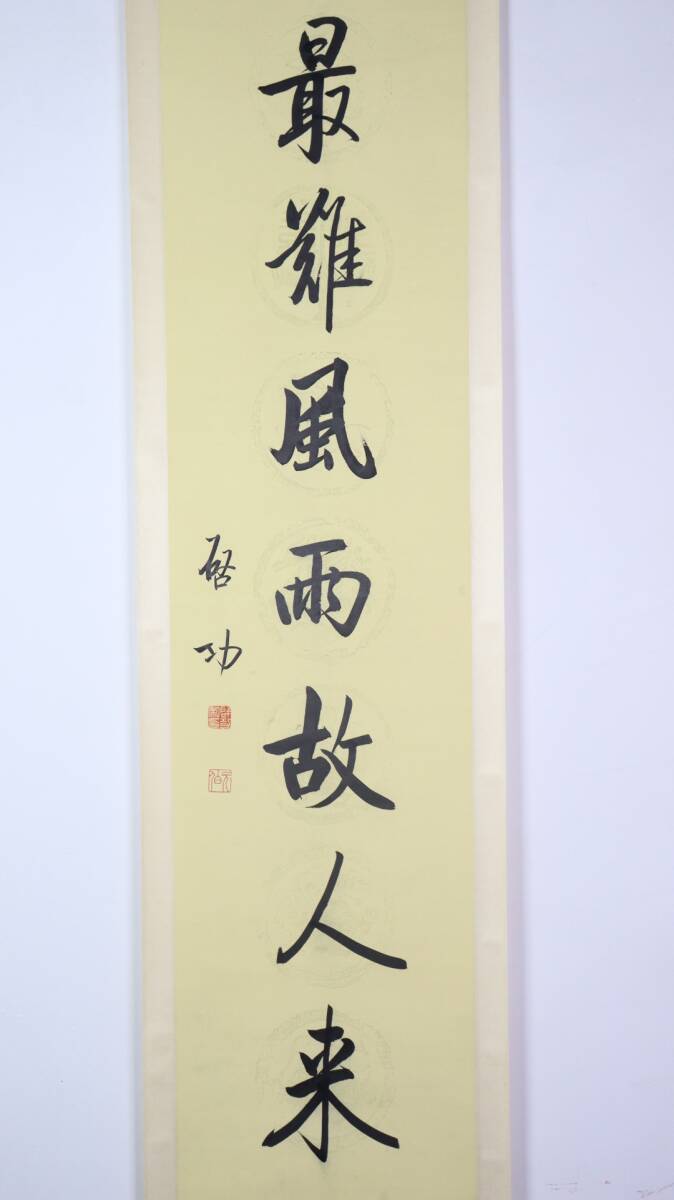 最難風雨故人来
啓功